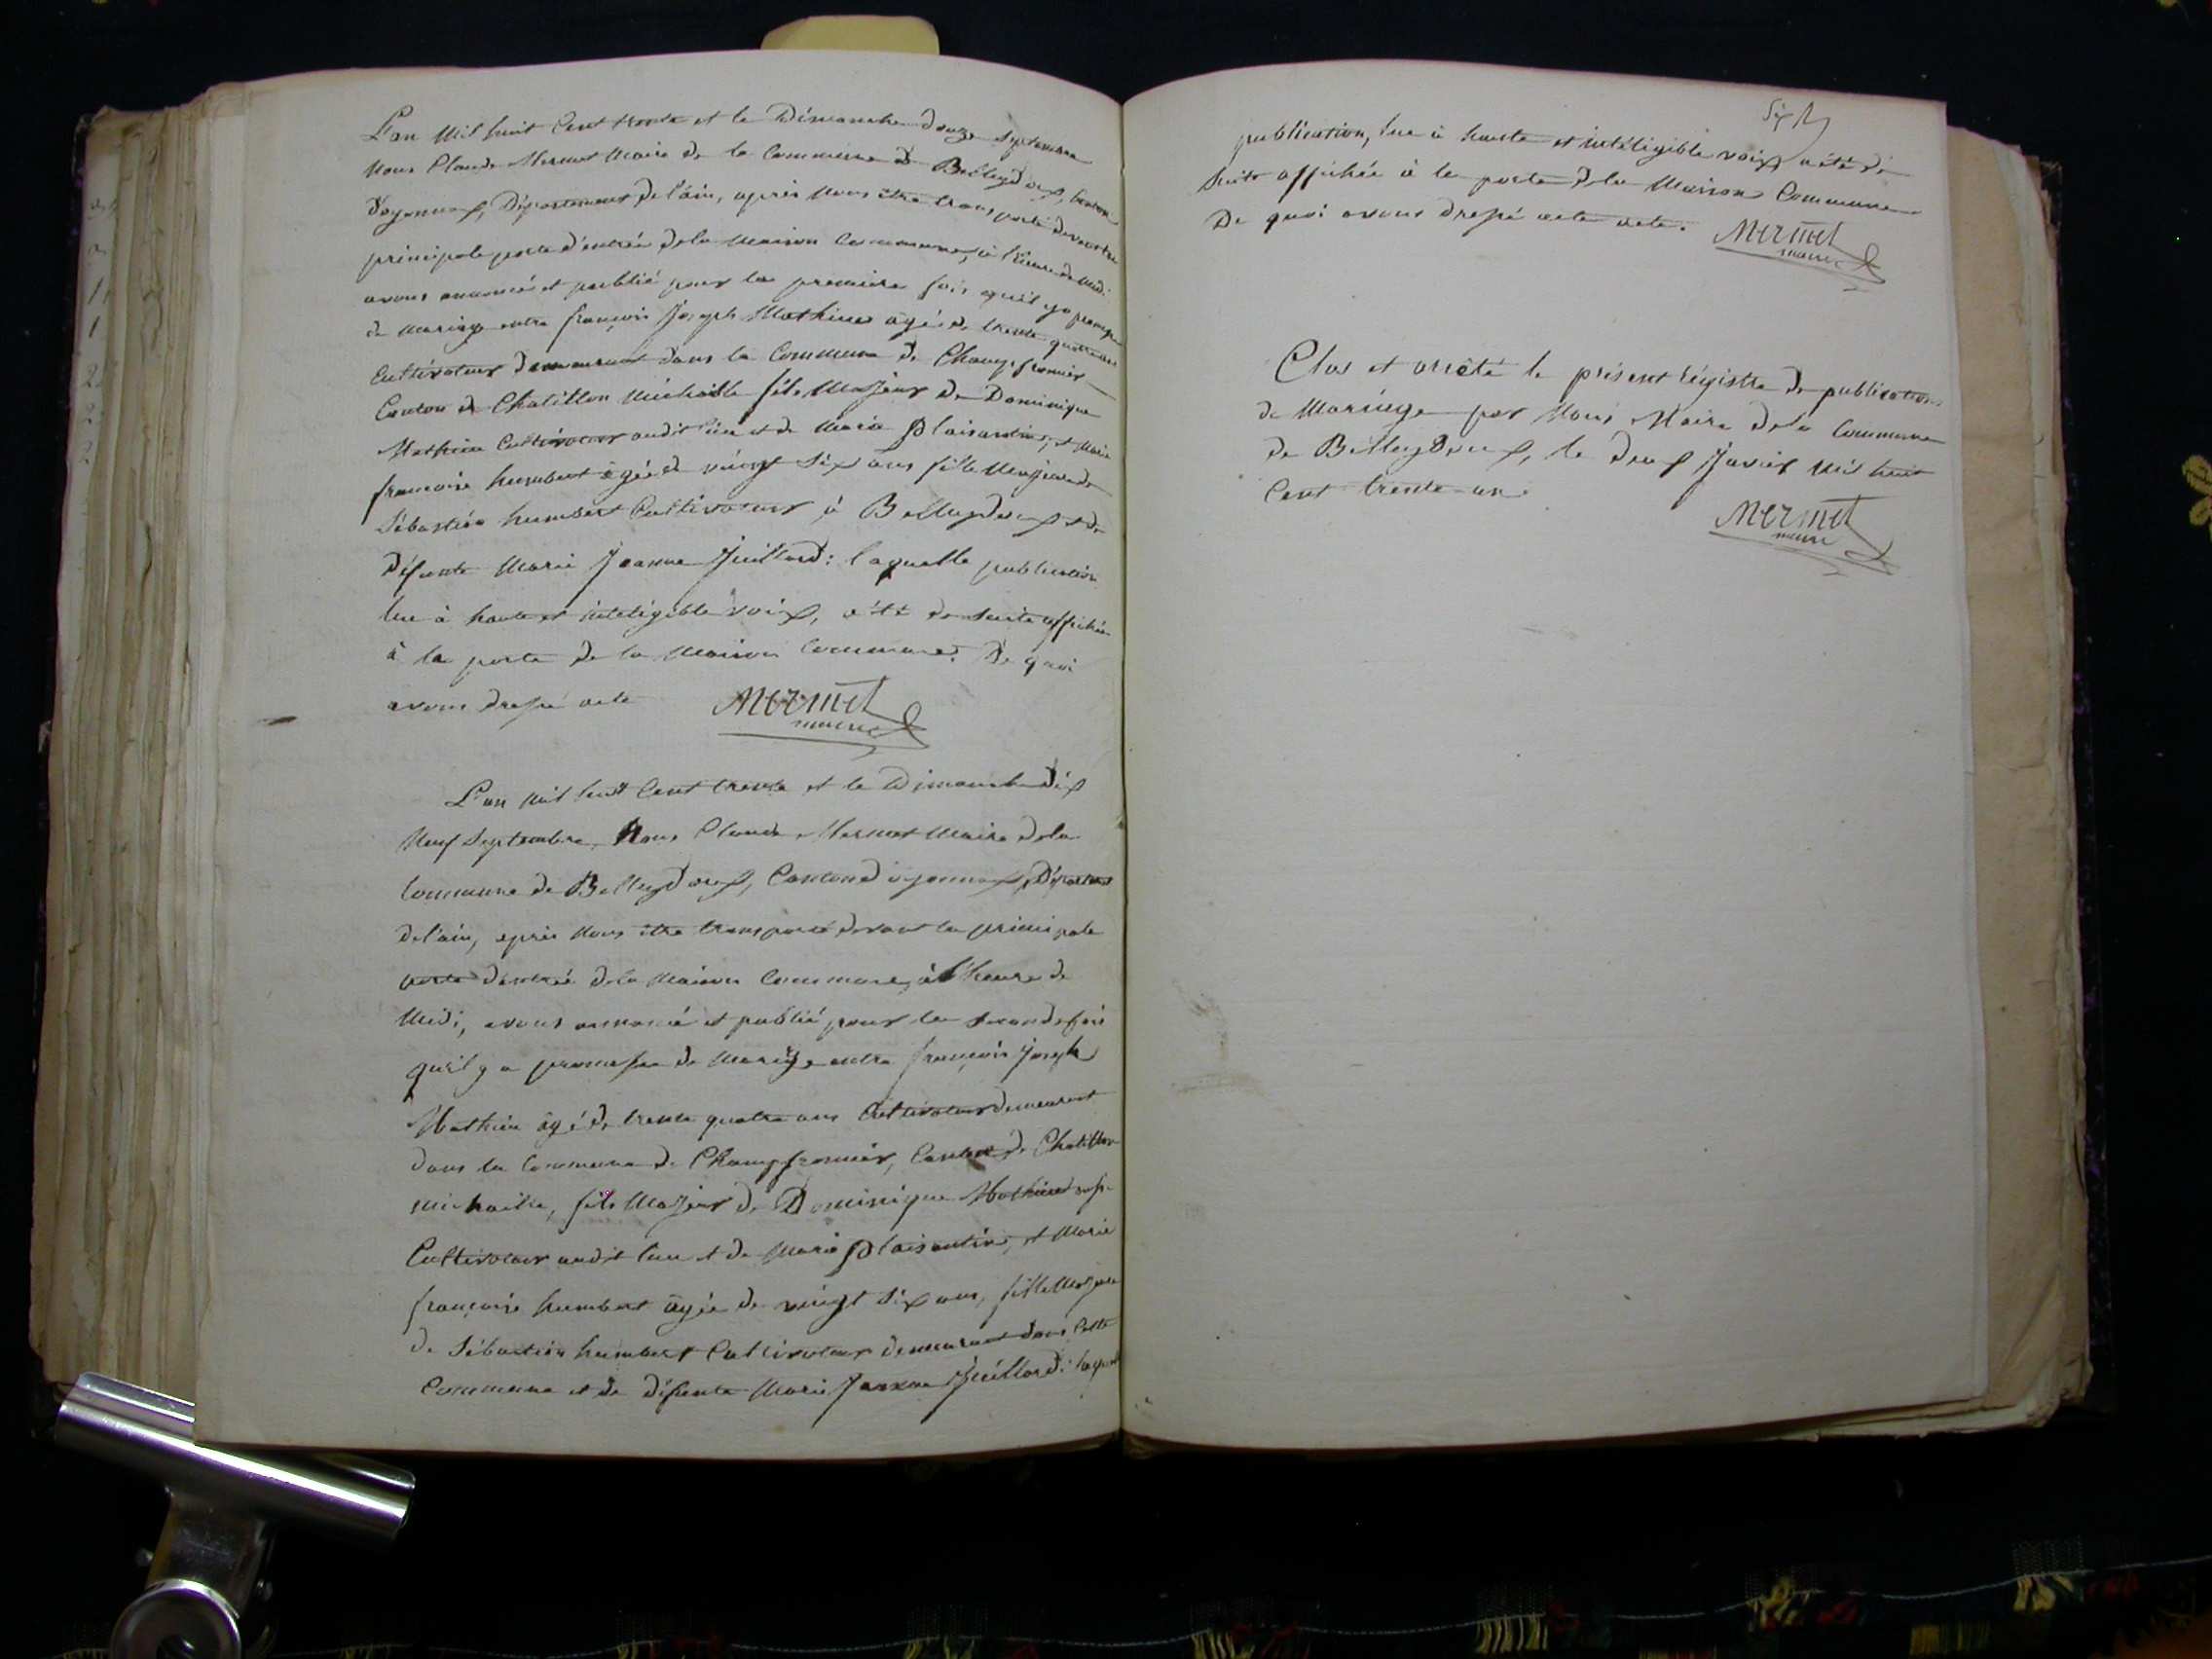 L'an mil huit Cent trente et le Dimanche douze septembre
Nous Claude Mermet Maire de la Commune de Belleydoux, Canton
d'oyonnax, Département de l'ain, après nous être transporté devant la
principale porte d'entrée de la Maison Commune, à l'heure de midi
avons annoncé et publié pour la première fois qu'il y a promesse
de mariage entre françois Joseph Mathieu âgé de trente quatre ans
Cultivateur demeurant dans la Commune de Champfromier
Canton de Chatillon Michaille fils Majeur de Dominique
Mathieu Cultivateur audit lieu et de Marie Plaisantin, et Marie
françoise humbert âgée de vingt Six ans fille Majeure de
Sébastien humbert Cultivateur à Belleydoux et de
Défunte Marie Jeanne Juillard: laquelle publication
lue à haute et inteligible voix, a été de suite affichée
à la porte de la Maison Commune. De quoi
avons dressé acte Mermet
maire
L'an mil huit Cent trente et le Dimanche dix
Neuf Septembre, Nous Claude Mermet Maire de la
Commune de Belleydoux, Canton d'oyonnax, Départemt
de l'ain, après nous être transporté devant la principale
porte d'entrée de la Maison Commune, à l'heure de
Midi, avons annoncé et publié pour la seconde fois
qu'il y a promesse de Mariage entre françois Joseph
Mathieu âgé de trente quatre ans Cultivateur demeurant
dans la Commune de Champfromier, Canton de Chatillon
michaille, fils Majeur de Dominique Mathieu
Cultivateur audit lieu et de Marie Plaisantin, et Marie
françoise humbert âgée de vingt Six ans, fille Majeure
de Sébastien humbert Cultivateur demeurant dans cette
Commune et de défunte Marie Jeanne Juillard: laquelle
Six
publication, lue à haute et inteligible voix a été de
suite affichée à la porte de la Maison Commune
De quoi avons dressé acte acte. Mermet
maire
Clos et arrêté le présent régistre de publications
de Mariage par Nous Maire de la Commune
de Belleydoux, le deux Javier mil huit
Cent trente un
Mermet
maire